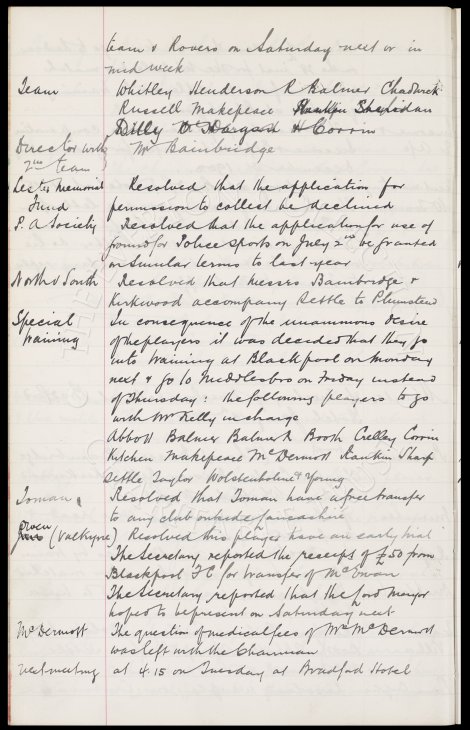 team v Rovers on Saturday next or in
mid week
Team Whitley Henderson R Balmer Chadwick
Russell Makepeace Rankin Sheridan
Dilly W Hargard H Corrin
Director with Mr Bainbridge
2nd team
Lester Memorial Resolved that the application for
Fund permission to collect be declined
P. A Society Resolved that the application for use of
ground for Police sports on July 2nd be granted
on similar terms to last year
North v South Resolved that Messrs Bainbridge &
Kirkwood accompany Settle to Plumstead
Special In consequence of the unanimous desire
training of the players it was decided that they go
into training at Blackpool on Monday
next & go to Middlesbro on Friday instead
of Thursday: the following players to go
with Mr Kelly in charge
Abbott Balmer Balmer R Booth Crelley Corrin
Kitchen Makepeace McDermott Rankin Sharp
Settle Taylor Wolstenholme & Young
Toman Resolved that Toman have a free transfer
to any club outside Lancashire
Owen
(Valkyrie) Resolved this player have an early trial
The Secretary reported the receipt of £50 from
Blackpool FC for transfer of McEwan
The Secretary reported that the Lord Mayor
hoped to be present on Saturday next
McDermott The question of medical fees of Mr McDermott
was left with the Chairman
next meeting at 4.15 on Tuesday at Bradford Hotel